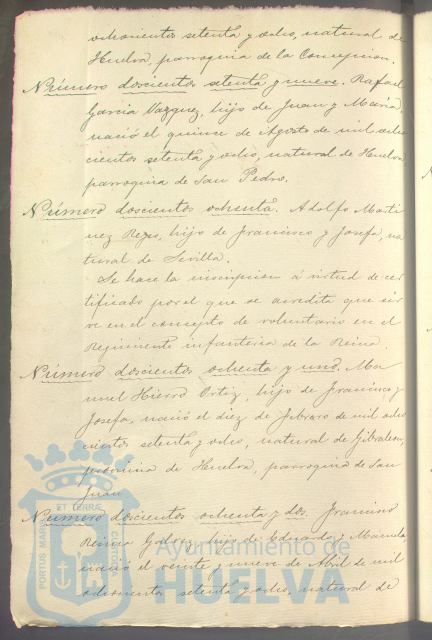 ochocientos setenta y ocho, natural de
Huelva, parroquia de la Concepcion.
Número doscientos setenta y nueve. Rafael
Garcia Vazquez, hijo de Juan y Maria,
nació el quince de Agosto de mil ocho
cientos setenta y ocho, natural de Huelva
parroquia de San Pedro.
Número doscientos ochenta. Adolfo Marti
nez Reyes, hijo de Francisco y Josefa, na
tural de Sevilla.
Se hace la inscripcion á virtud de cer
tificado por el que se acredita que sir
ve en el concepto de voluntario en el
Regimiento infanteria de la Reina.
Número doscientos ochenta y uno. Ma
nuel Hierro Ortiz, hijo de Francisco y
Josefa, nació el diez de Febrero de mil ocho
cientos setenta y ocho, natural de Gibraleon,
provincia de Huelva, parroquia de San
Juan
Número doscientos ochenta y dos Francisco
Reina Galvez, hijo de Eduardo y Manuela
nació el veinte y nueve de Abril de mil
ochocientos setenta y ocho, natural de
PORTUS MARIS ET TERRÆ CUSTODIA
Ayuntamiento de
HUELVA